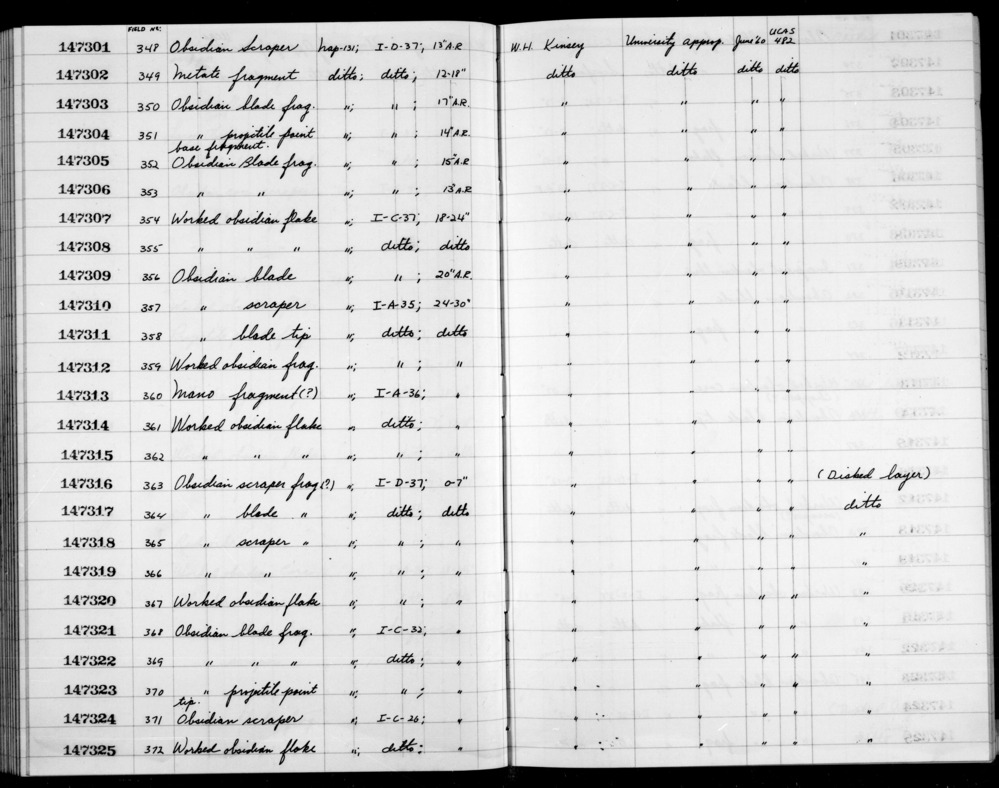 FIELD No:
147301 348 Obsidian Scraper Nap-131; I-D-37; 13" A.R W.H. Kinsey University approp. June '60 UCAS 482
147302 349 Metate fragment ditto; ditto; 12-18" ditto ditto ditto ditto
147303 350 Obsidian blade frag. "; " ; 17" A.R. " " " "
147304 351 " projectile point "; " ; 14" A.R " " " "
base fragment.
147305 352 Obsidian Blade frag. "; " ; 15" A.R " " " "
147306 353 " " "; " ; 13" A.R " " " "
147307 354 Worked obsidian flake "; I-C-37; 18-24" " " " "
147308 355 " " " "; ditto; ditto " " " "
147309 356 Obsidian blade "; " ; 20" A.R. " " " "
147310 357 " scraper "; I-A-35; 24-30" " " " "
147311 358 " blade tip "; ditto; ditto " " " "
147312 359 Worked obsidian frag. "; " ; " " " " "
147313 360 Mano fragment(?) "; I-A-36; " " " " "
147314 361 Worked obsidian flake " ditto; " " " " "
147315 362 " " " "; " ; " " " " "
147316 363 Obsidian scraper frag(?) " I-D-37; 0-7" " " " " (Disked layer)
147317 364 " blade " "; ditto; ditto " " " " ditto
147318 365 " scraper " "; " ; " " " " " "
147319 366 " " "; " ; " " " " " "
147320 367 Worked obsidian flake "; " ; " " " " " "
147321 368 Obsidian blade frag. "; I-C-32; " " " " " "
147322 369 " " " "; ditto; " " " " " "
147323 370 " projectile point "; " ; " " " " " "
tip.
147324 371 Obsidian scraper "; I-C-26; " " " " " "
147325 372 Worked obsidian flake "; ditto; " " " " " "